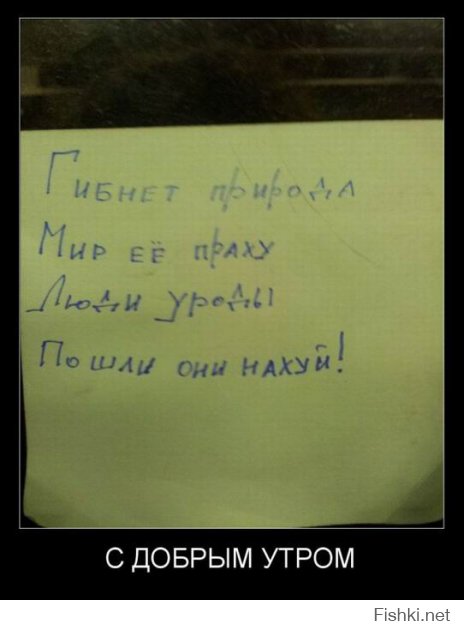 Гибнет природа
Мир её праху
Люди уроды
Пошли они нахуй!
С ДОБРЫМ УТРОМ
Fishki.net